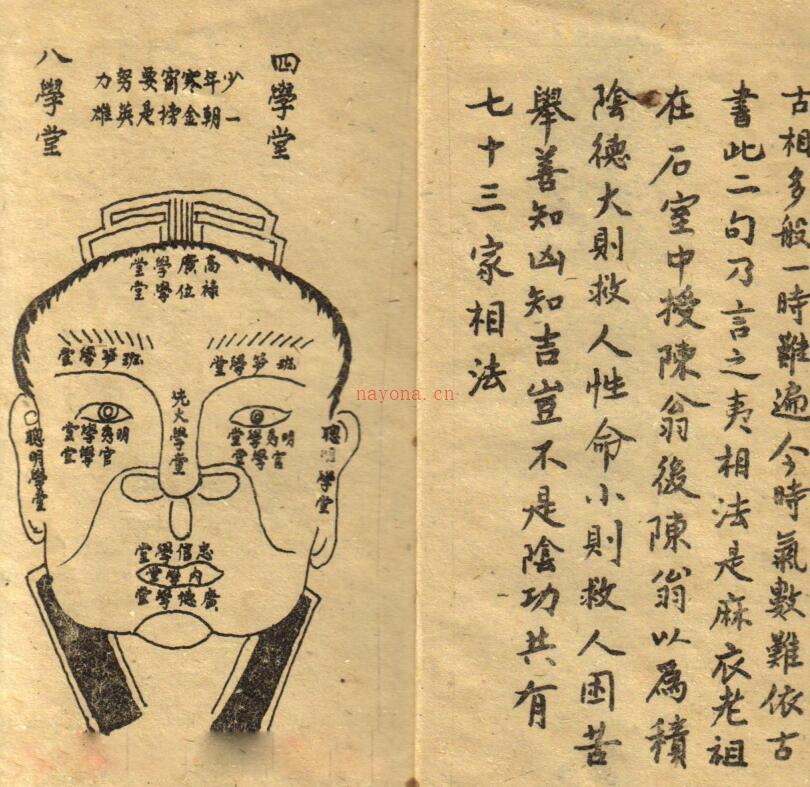 古相多般一時難遍今時氣數難依古
書此二句乃言之夷相法是麻衣老祖
在石室中授陳翁後陳翁以為積
陰德大則救人性命小則救人困苦
舉善知凶知吉豈不是陰功共有
七十三家相法
四學堂
少年寒窗要努力
一朝金榜是英雄
八學堂
高廣學堂
祿位學堂
班笋學堂
班笋學堂
明秀學堂
官學堂
明秀學堂
官學堂
聰明學堂
聰明學堂
忠信學堂
內學堂
廣德學堂
nayona.cn